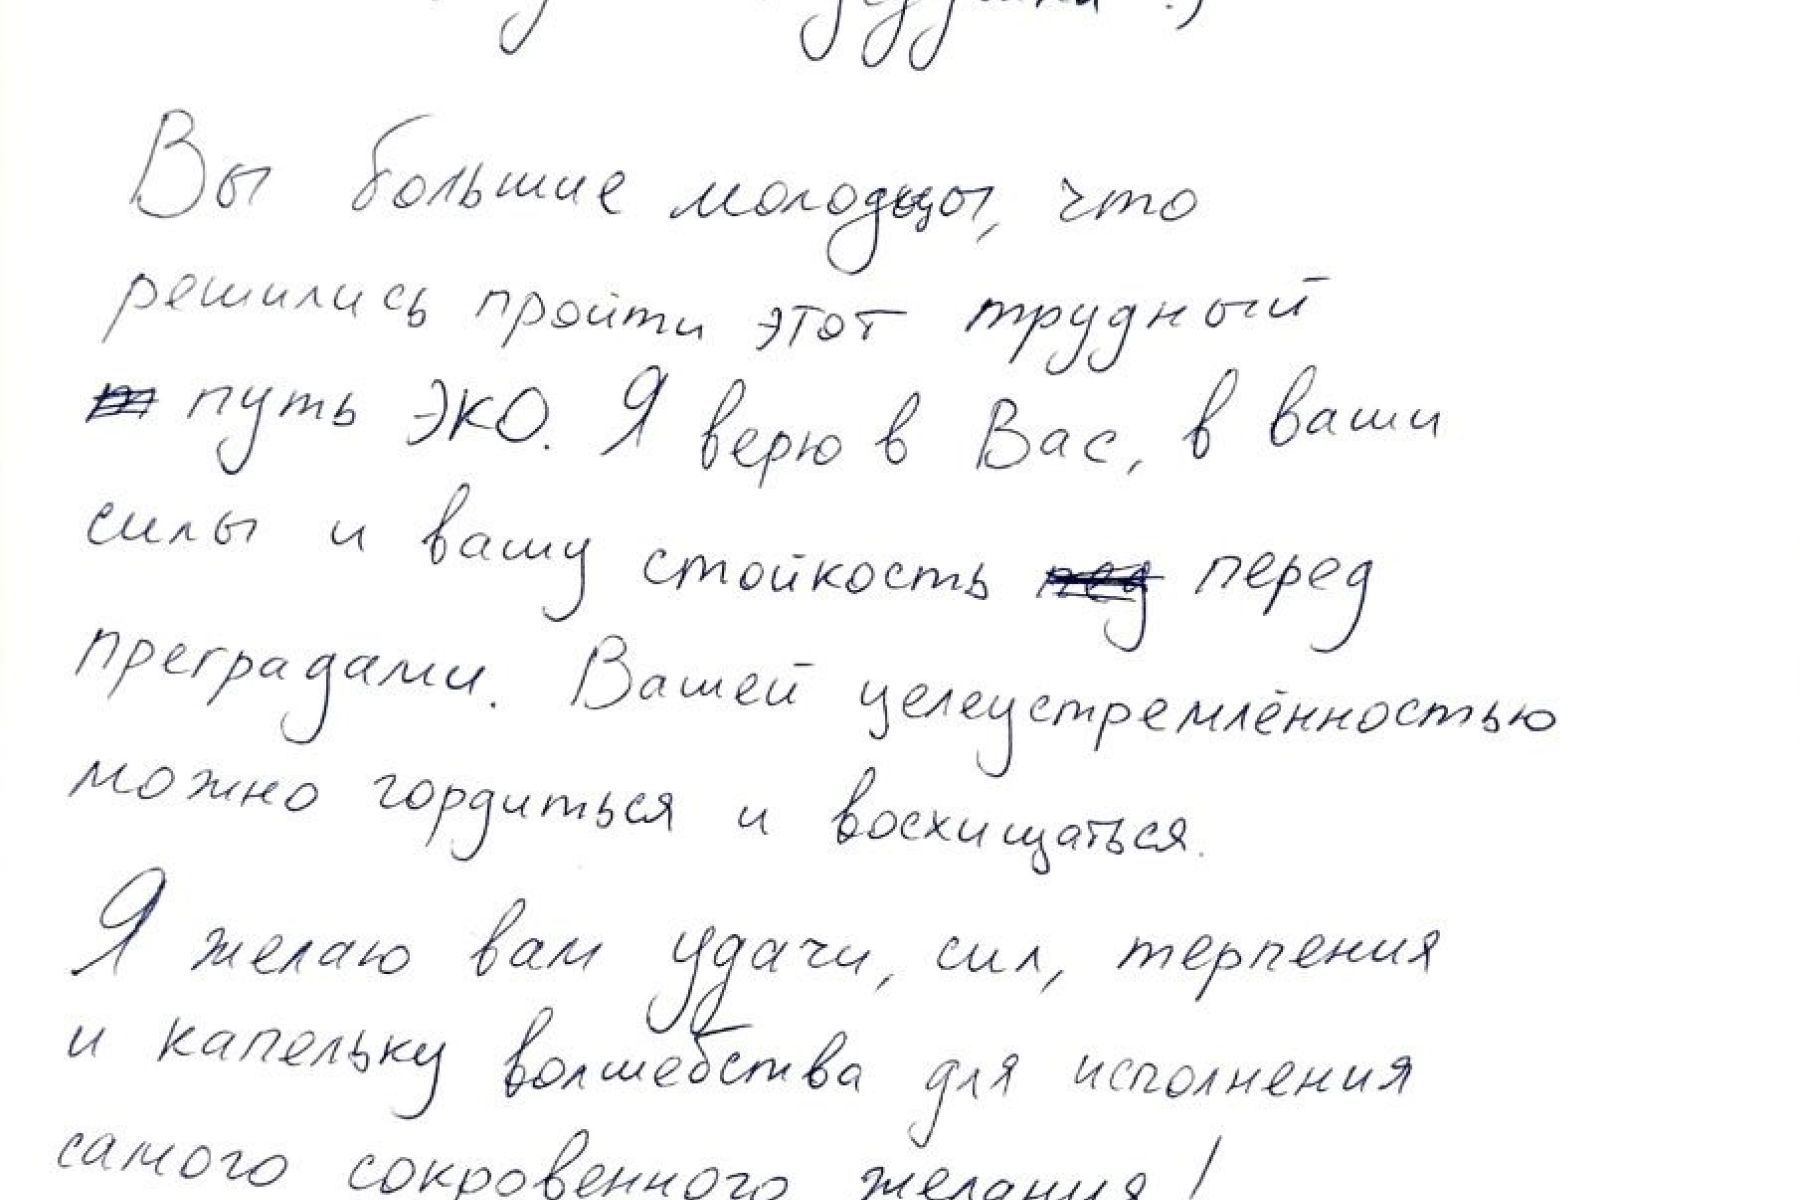 Вы большие молодцы, что
решились пройти этот трудный
путь ЭКО. Я верю в Вас, в ваши
силы и вашу стойкость перед
преградами. Вашей целеустремлённостью
можно гордиться и восхищаться.
Я желаю вам удачи, сил, терпения
и капельку волшебства для исполнения
самого сокровенного желания!